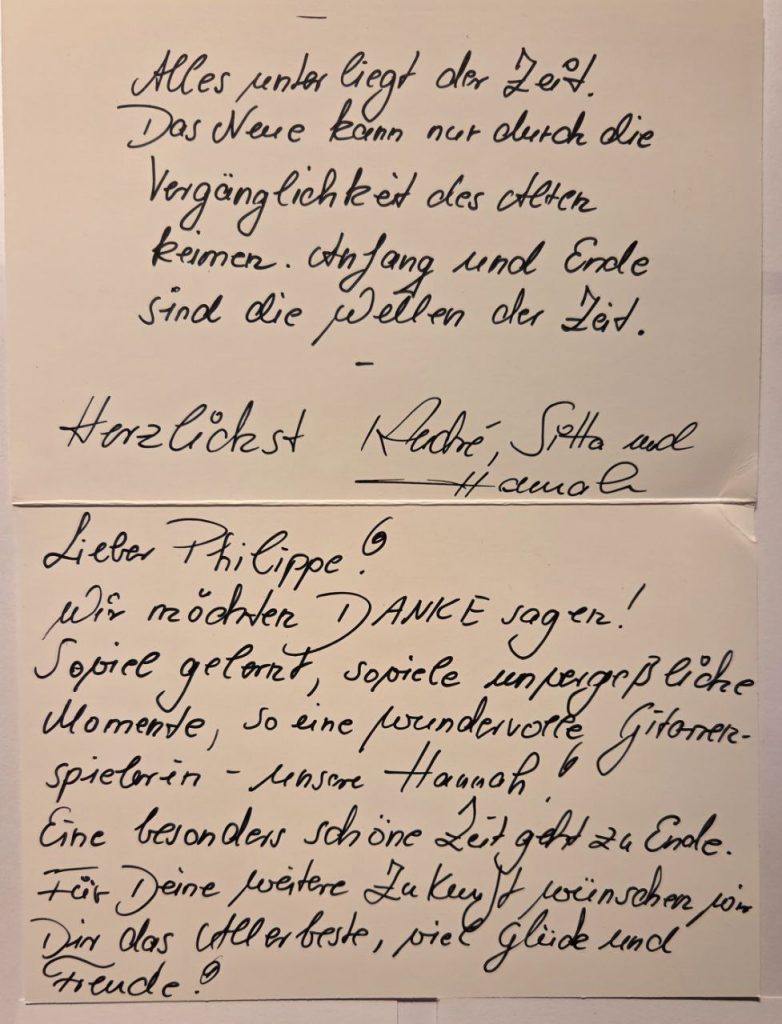 Alles unterliegt der Zeit.
Das Neue kann nur durch die
Vergänglichkeit des Alten
keimen. Anfang und Ende
sind die Wellen der Zeit.
–
Herzlichst André, Sitta und
Hannah
Lieber Philippe!
Wir möchten DANKE sagen!
Soviel gelernt, soviele unvergeßliche
Momente, so eine wundervolle Gitarren-
spielerin – unsere Hannah!
Eine besonders schöne Zeit geht zu Ende.
Für Deine weitere Zukunft wünschen wir
Dir das Allerbeste, viel Glück und
Freude!